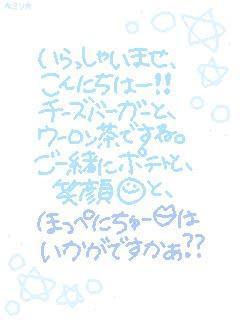 いらっしゃいませ、
こんにちはー!!
チーズバーガーと、
ウーロン茶ですね。
ご一緒にポテトと、
笑顔と、
ほっぺにちゅーは
いかがですかぁ??